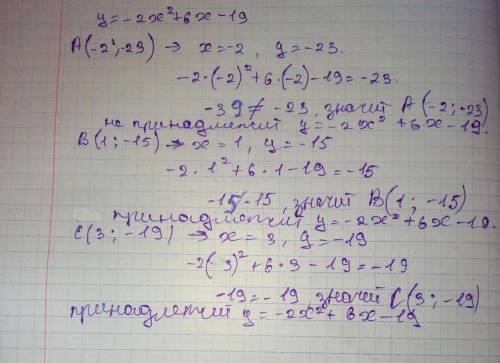 y = -2x²+6x-19
A(-2;-23) → x=-2, y=-23.
-2·(-2)²+6·(-2)-19=-23.
-39≠-23, значит A(-2;-23)
не принадлежит y=-2x²+6x-19.
B(1;-15) → x=1, y=-15
-2·1²+6·1-19=-15
-15-15, значит B(1;-15)
принадлежит y=-2x²+6x-19.
C(3;-19) → x=3, y=-19
-2(·3)²+6·3-19=-19
-19=-19, значит C(3;-19)
принадлежит y=-2x²+6x-19